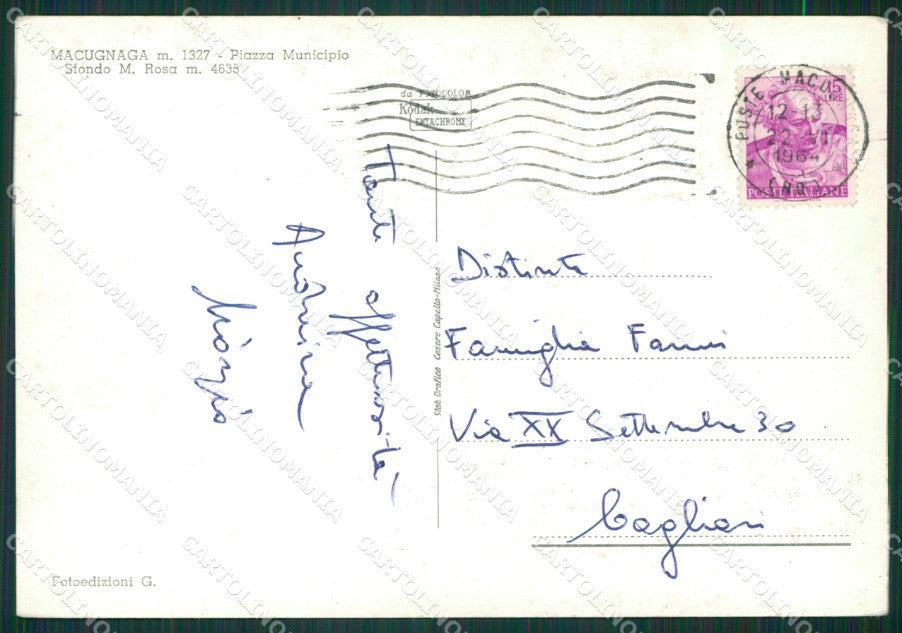 MACUGNAGA m. 1327 - Piazza Municipio
Sfondo M. Rosa m. 4635
da FOTOCOLOR
Kodak
EKTACHROME
15
LIRE
POSTE ITALIANE
POSTE MACU
12-13
22 VI
1964
(NO)
Tante affettuosità
Andreina
Stab Grafico Cesare Capello-Milano
Distinta
Famiglia Fanni
Via XX Settembre 30
Cagliari
Fotoedizioni G.
CARTOLINOMANIA